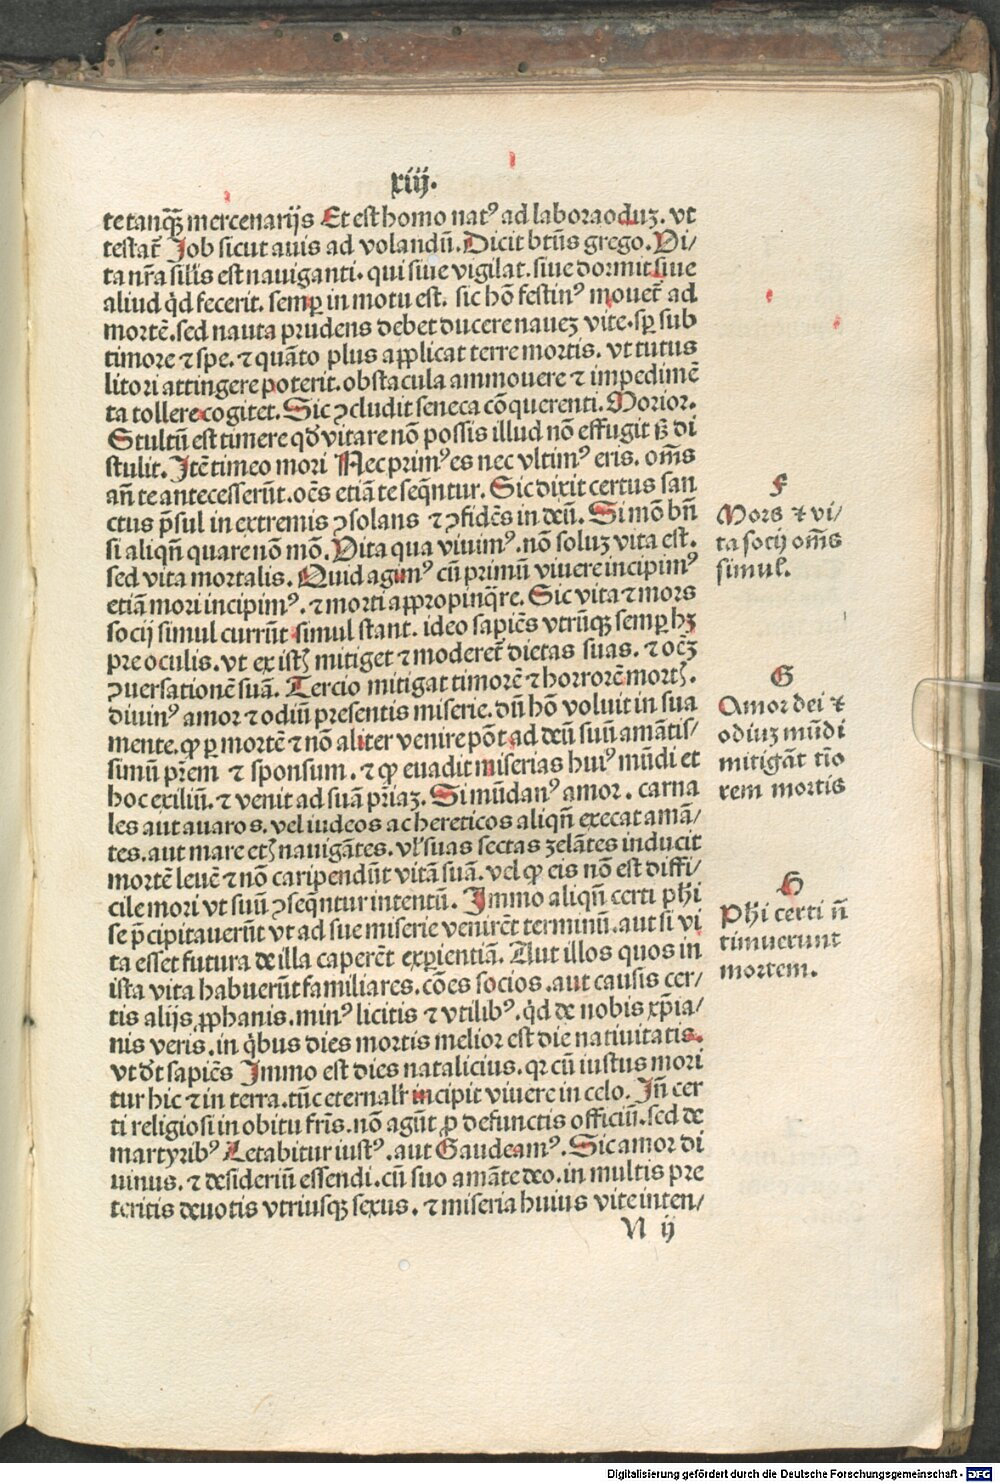 xiij.
te tanqȝ̃ mercenarijs Et est homo natꝰ ad laboraoduȝ. vt
testat᷑ Job sicut auis ad volandũ. Dicit btũs grego. Vi/
ta nr̃a silis est nauiganti. qui siue vigilat. siue dormit siue
aliud qͥd fecerit. semꝑ in motu est. sic hõ festinꝰ mouet᷑ ad
mortẽ. sed nauta prudens debet ducere nauez vite. sꝑ sub
timore ⁊ spe. ⁊ quãto plus applicat terre mortis. vt tutus
litori attingere poterit. obstacula ammouere ⁊ impedimẽ
ta tollere cogitet. Sic ꝯcludit seneca cõquerenti. Morior.
Stultũ est timere qd̛ vitare nõ possis illud nõ effugit sꝫ di
stulit. Jtẽ timeo mori Nec primꝰ es nec vltimꝰ eris. om̃s
añ te antecesserũt. oẽs etiã te seqñtur. Sic dixit certus san
ctus p̃sul in extremis ꝯsolans ⁊ ꝯfidẽs in deũ. Si mõ bñ
si aliqñ quare nõ mõ. Vita qua viuimꝰ. nõ soluȝ vita est.
sed vita mortalis. Quid agimꝰ cũ primũ viuere incipimꝰ
etiã mori incipimꝰ. ⁊ morti appropinq̃re. Sic vita ⁊ mors
socij simul currũt simul stant. ideo sapiẽs vtrũqȝ semꝑ hȝ
pre oculis. vt ex istꝭ mitiget ⁊ moderet᷑ dietas suas. ⁊ oẽȝ
ꝯuersationẽ suã. Tercio mitigat timorẽ ⁊ horrorẽ mortꝭ.
diuinꝰ amor ⁊ odiũ presentis miserie. dũ hõ voluit in sua
mente. ꝙ ꝑ mortẽ ⁊ nõ aliter venire põt ad deũ suũ amãtis/
simũ pr̃em ⁊ sponsum. ⁊ ꝙ euadit miserias huiꝰ mũdi et
hoc exiliũ. ⁊ venit ad suã pr̃iaȝ. Si mũdanꝰ amor. carna
les aut auaros. vel iudeos ac hereticos aliqñ execat amã/
tes. aut mare etꝭ nauigãtes. vl̛ suas sectas zelãtes inducit
mortẽ leuẽ ⁊ nõ caripendũt vitã suã. vel ꝙ eis nõ est diffi/
cile mori vt suũ ꝯseqñtur intentũ. Jmmo aliqñ certi ph̃i
se p̃cipitauerũt vt ad sue miserie venirẽt terminũ. aut si vi
ta esset futura de illa caperẽt experientiã. Aut illos quos in
ista vita habuerũt familiares. cões socios. aut causis cer/
tis alijs ꝓphanis. minꝰ licitis ⁊ vtilibꝰ. qͥd de nobis xp̃ia/
nis veris. in qͥbus dies mortis melior est die natiuitatis.
vt dt̛ sapiẽs Jmmo est dies natalicius. qr cũ iustus mori
tur hic ⁊ in terra. tũc eternalr̛ incipit viuere in celo. Jñ cer
ti religiosi in obitu fr̃is. nõ agũt ꝓ defunctis officiũ. sed de
martyribꝰ Letabitur iustꝰ. aut Gaudeamꝰ. Sic amor di
uinus. ⁊ desideriũ essendi. cũ suo amãte deo. in multis pre
teritis deuotis vtriusqȝ sexus. ⁊ miseria huius vite inten/
N ij
F
Mors ⁊ vi/
ta socij om̃s
simul.
G
Amor dei ⁊
odiuȝ mũdi
mitigãt tĩo
rem mortis
H
Ph̃i certi ñ
timuerunt
mortem.
Digitalisierung gefördert durch die Deutsche Forschungsgemeinschaft - DFG